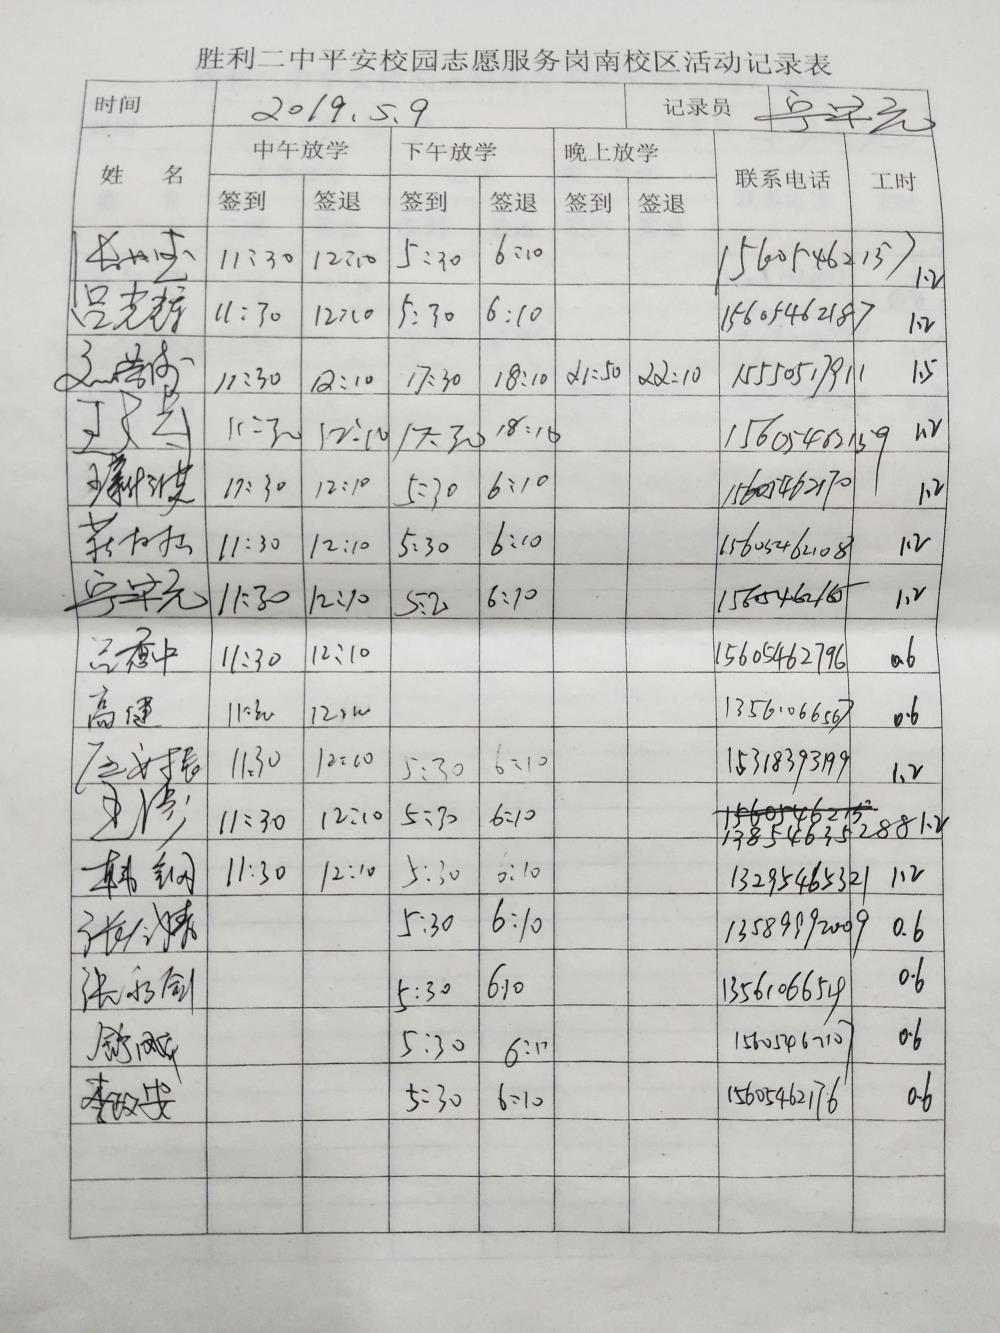 胜利二中平安校园志愿服务岗南校区活动记录表
时间 2019.5.9 记录员 宁守元
姓 名 中午放学 下午放学 晚上放学 联系电话 工时
签到 签退 签到 签退 签到 签退
11:30 12:10 5:30 6:10 1.2
吕光辉 11:30 12:10 5:30 6:10 15605462187 1.2
11:30 12:10 17:30 18:10 21:50 22:10 15550517911 1.5
11:30 12:10 17:30 18:10 15605462159 1.2
11:30 12:10 5:30 6:10 15605462170 1.2
11:30 12:10 5:30 6:10 15605462108 1.2
宁守元 11:30 12:10 6:10 1.2
吕 中 11:30 12:10 15605462796 0.6
高健 11:30 12:10 13561066567 0.6
11:30 12:10 5:30 6:10 15318393199 1.2
王涛 11:30 12:10 5:30 6:10 13854635288 1.2
韩钢 11:30 12:10 5:30 6:10 13295465321 1.2
张 5:30 6:10 13589992009 0.6
张永剑 5:30 6:10 13561066519 0.6
5:30 6:10 15605462107 0.6
李政安 5:30 6:10 15605462176 0.6